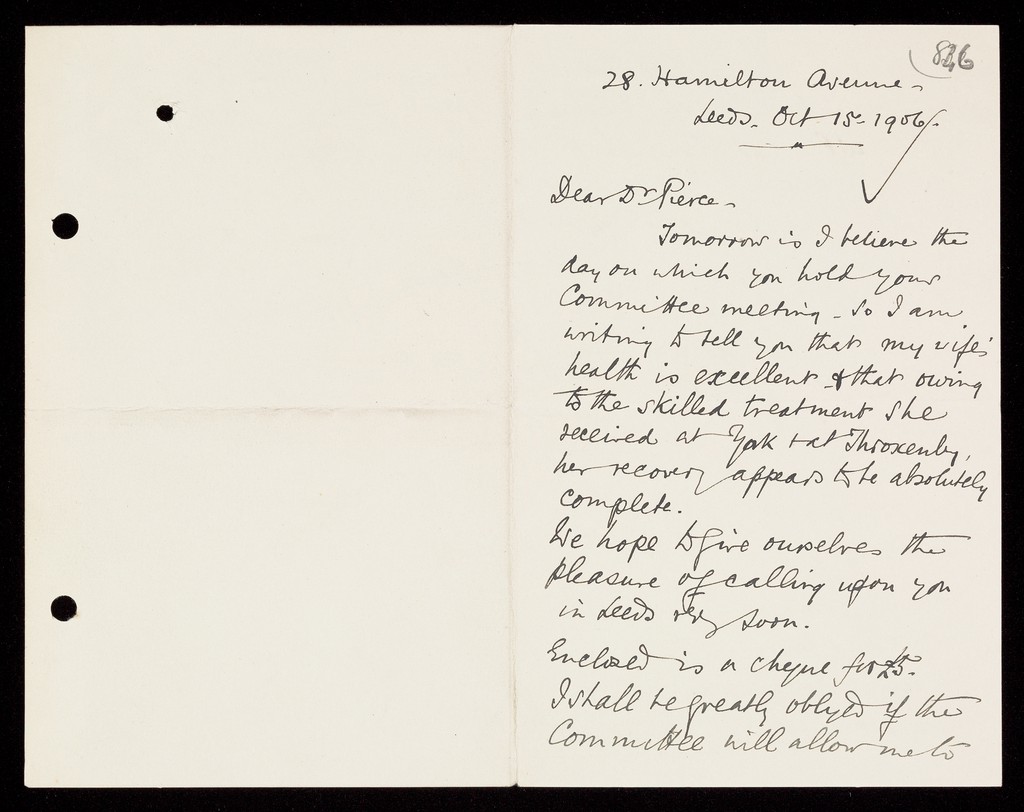 846
28. Hamilton Avenue -
Leeds - Oct 15 - 1906.
Dear Dr Pierce -
Tomorrow is I believe the
day on which you hold your
Committee meeting - So I am
writing to tell you that my wife's
health is excellent & that owing
to the skilled treatment she
received at York & at Throxenby,
her recovery appears to be absolutely
complete.
We hope to give ourselves the
pleasure of calling upon you
in Leeds very soon.
Enclosed is a cheque for £5.
I shall be greatly obliged if the
Committee will allow me to